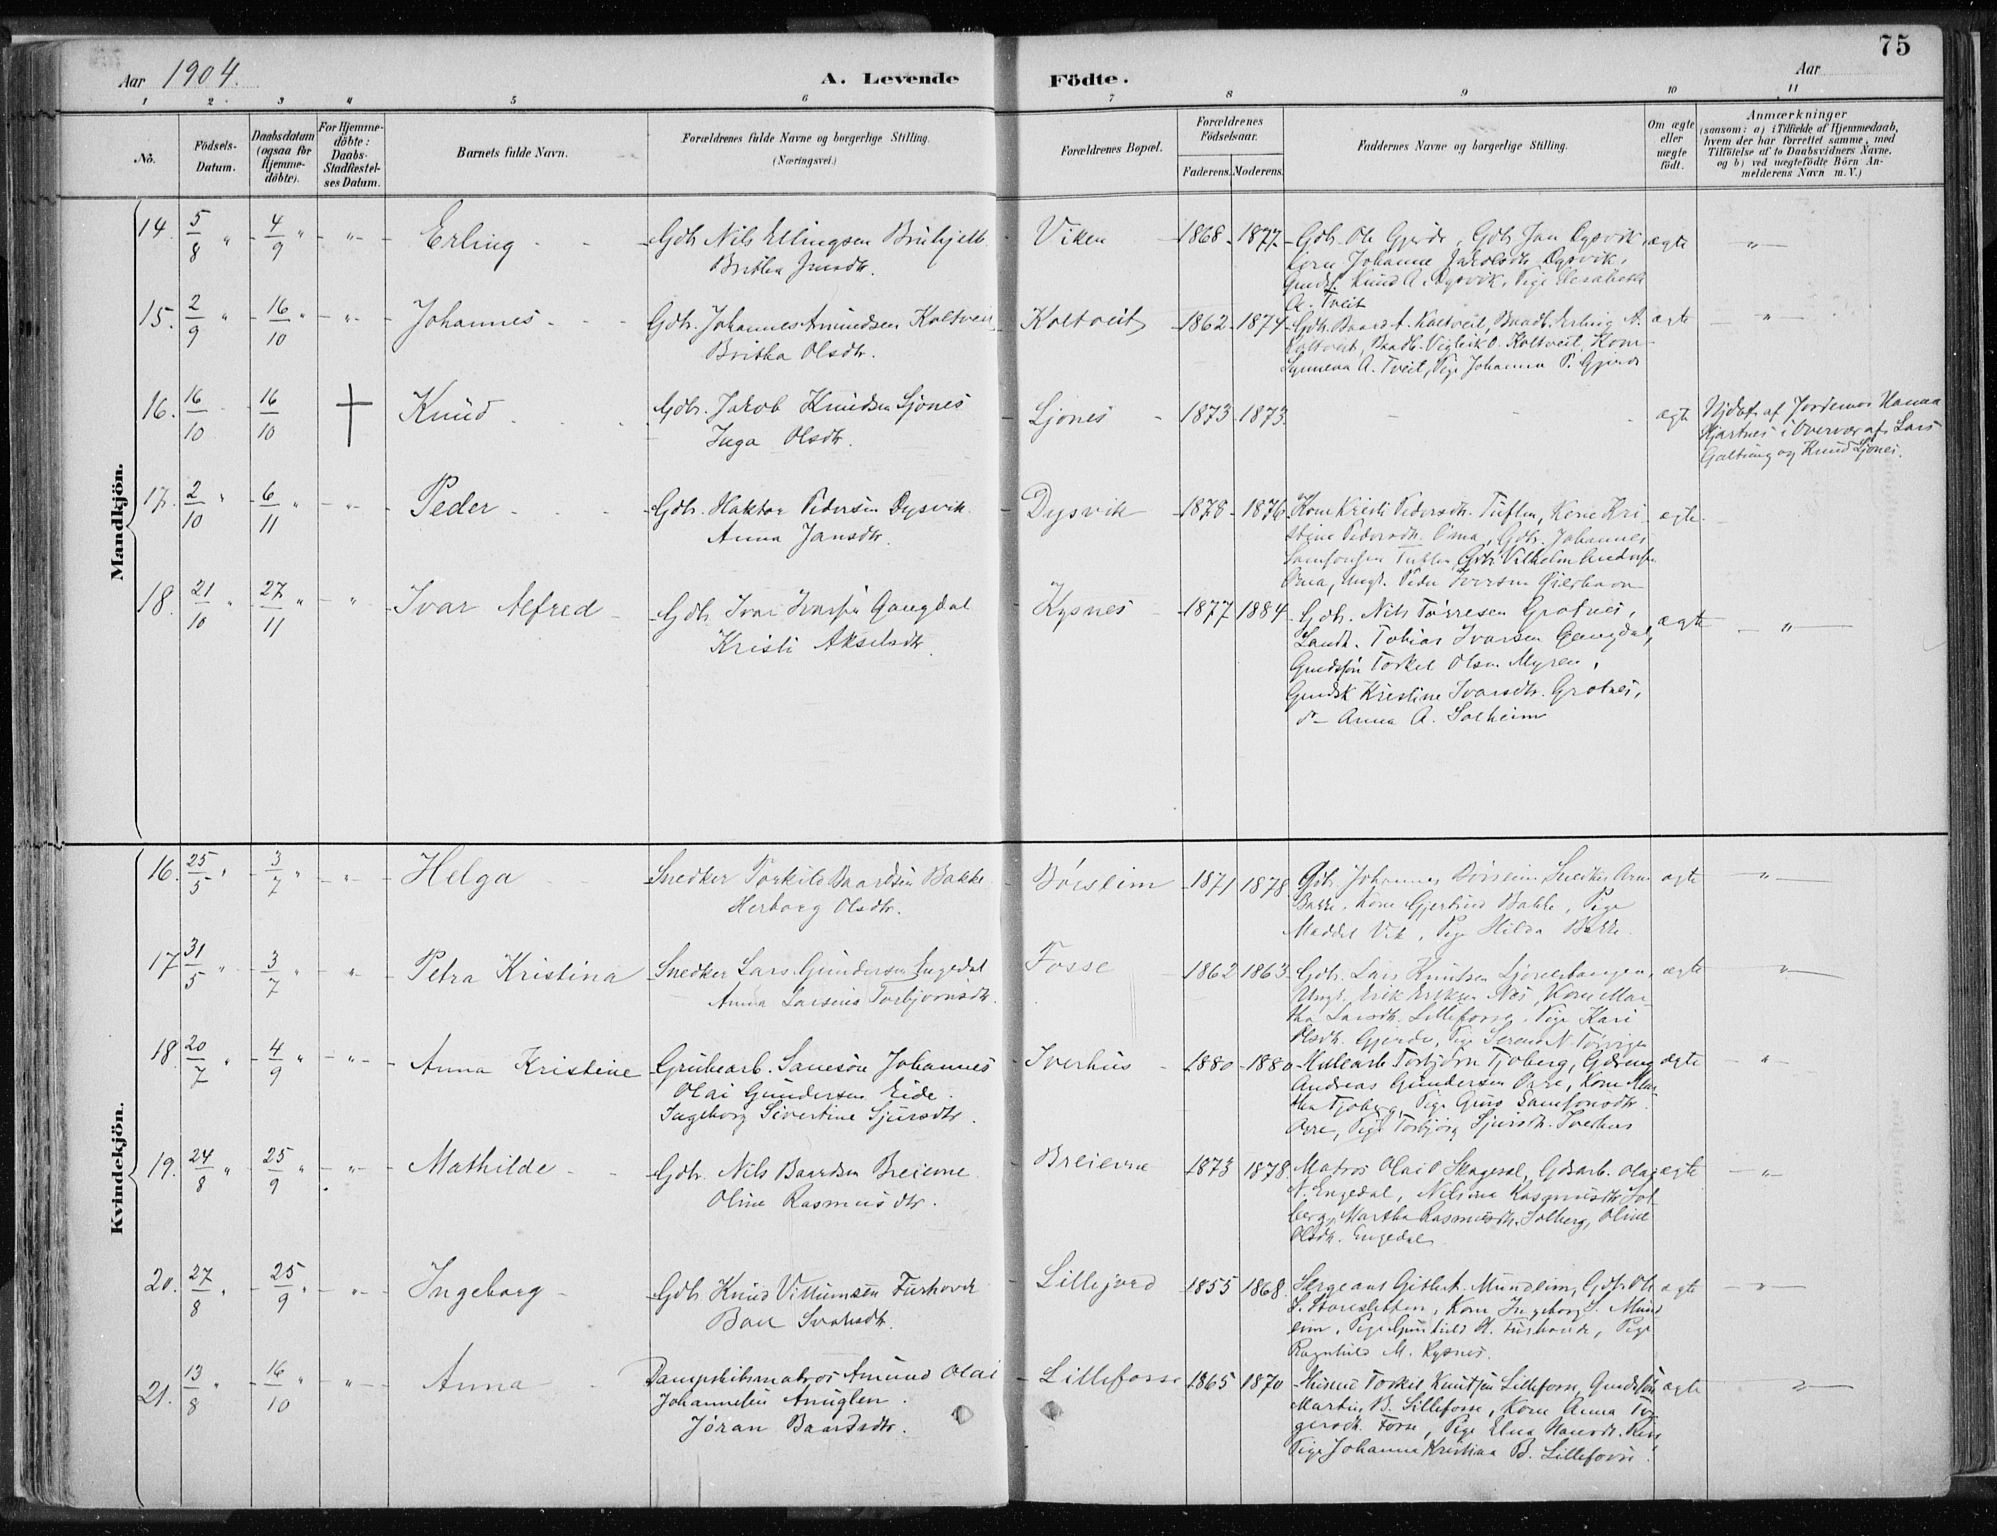 75
Aar 1904.
A. Levende Födte.
Aar
1 2 3 4 5 6 7 8 9 10 11
No.
Födsels-Datum.
Daabsdatum (ogsaa for Hjemme-döbte).
For Hjemme-döbte: Daabs-Stadfæstel-ses Datum.
Barnets fulde Navn.
Forældrenes fulde Navne og borgerlige Stilling.
(Næringsvei.)
Forældrenes Bopæl.
Forældrenes Födselsaar.
Faderens. Moderens.
Faddernes Navne og borgerlige Stilling.
Om ægte eller uægte födt.
Anmærkninger
(saasom: a) i Tilfælde af Hjemmedaab, hvem der har forrettet samme, med Tilföielse af to Daabsvidners Navne, og b) ved uægtefödte Börn Anmelderens Navn m. V.)
Mandkjön.
14. 5/8 " 4/9 " " Erling Gdb. Nils Ellingsen
Britha
Viken 1868 1877 Gdb. Ole Gjerde, Gdb. Jan Dysvik,
Kone Johanne Jakobsdtr. Dysvik,
Knud A. Dysvik, Pige Elisabeth
A. Tveit
ægte "
15. 2/9 " 16/10 " " Johannes Gdb. Johannes Amundsen Koltveit
Britha Olsdtr.
Koltveit 1862 1874 Gdb. Baard A. Koltveit, Erling A.
Koltveit, Vigleik O. Koltveit, Kone
Synneva A. Tveit, Pige Johanna P. Gjerde
ægte "
16. 16/10 16/10 † Knud Gdb. Jakob Knudsen Sjones
Inga Olsdtr.
Ljones 1873 1873 ægte
Hjdøbt af Jordemor Hanna
i Overvær af Lars
Galtung og Knud Ljones.
17. 2/10 " 6/11 " " Peder Gdb. Haktor Pedersen Dysvik
Anna Jansdtr.
Dysvik 1878 1876 Kone Kristi Pedersdtr. Tuften, Kone Kri
stine Pedersdtr. Oma, Gdb. Johannes
Samsonsen Tuften, Gdb. Vilhelm Andersen
Oma, Ungk. Peder Iversen
ægte
18. 21/10 " 27/11 " " Ivar Alfred Gdb. Ivar Ivarsen Gangdal
Kristi Akselsdtr.
Kysnes 1877 1884 Gdb. Nils Tørresen Grotnes,
Tobias Ivarsen Gangdal,
Grdsøn Torkel Olsen Myren,
Kristine Ivarsdtr. Grotnes,
d- Anna A. Solheim
ægte "
Kvindekjön.
16. 25/5 " 3/7 " " Helga Snedker Torkild Baardsen Bakke
Herborg Olsdtr.
Börsheim 1871 1878 Gdb. Johannes Börsheim Snedker Arne
Bakke, Kone Gjertrud Bakke, Pige
Maddel Vik, Pige Hilda Bakke.
ægte "
17 31/5 " 3/7 " " Petra Kristina Snedker Lars Gundersen Engedal
Anna Larsine Torbjörnsdtr.
Fosse 1862 1863 Gdb. Lars Knutsen Ljonestangen,
Ungk. Erik Eriksen Nes, Kone Mar
tha Larsdtr. Lillefosse, Pige Kari
Olsdtr. Gjerde, Pige Serena N. Torvigen
ægte "
18 20/7 " 4/9 " " Anna Kristine Grubearb. Samson Johannes
Olai Gundersen Eide.
Ingeborg Sivertine Sjursdtr.
Iverhus 1880 1880 Torbjørn Tjoberg,
Andreas Gundersen Øvre, Kone Mar
tha Tjoberg, Pige Guro Samsonsdtr.
Øvre, Pige Torbjørg Sjursdtr. Iverhus
ægte "
19. 24/8 " 25/9 " " Mathilde Gdb. Nils Baardsen Breierne
Oline Rasmusdtr.
Breierne 1873 1878 Matros Olai O. Skogesal, Gdsarb. Olai
N. Engedal, Nelsina Rasmusdtr. Sol
berg, Martha Rasmusdtr. Solberg, Oline
Olsdtr. Engedal
ægte "
20. 27/8 " 25/9 " " Ingeborg Gdb. Knud Villumsen Furhovde
Svaresdtr.
Lillejord 1855 1868 Sergeant Gitle A. Mundeim, Ole
S. Storesletten, Kone Ingeborg S. Mund
eim, Pige Gunhild H. Furhovde, Pige
Ragnhild M. Kysnes.
ægte "
21. 13/8 " 16/10 " " Anna Dampskibsmatros Amund Olai
Johannesen Anuglen.
Jóran Baardsdtr.
Lillefosse 1865 1870 Husmd Torkel Knutsen Lillefosse, Grdsøn
Martin B. Lillefosse, Kone Anna Tor
gersdtr. Fosse, Pige Elna Hansdtr.
Pige Johanna Kristina B. Lillefosse.
ægte "